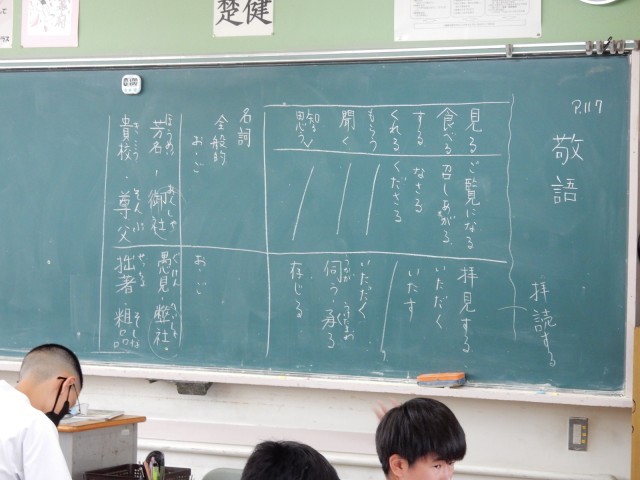 楚健
P.117
敬語
拝読する
見る
ご覧になる
拝見する
食べる
召しあがる
いただく
する
なさる
いたす
くれる
くださる
もらう
いただく
聞く
伺う・承る
うかが うけたまわ
知る
思う
存じる
名詞
全般的
お・ご
お・ご
ほうめい おんしゃ
芳名・御社
ぐけん へいしゃ
愚見・弊社
きこう そんぷ
貴校・尊父
せっちょ そしな
拙著・粗品